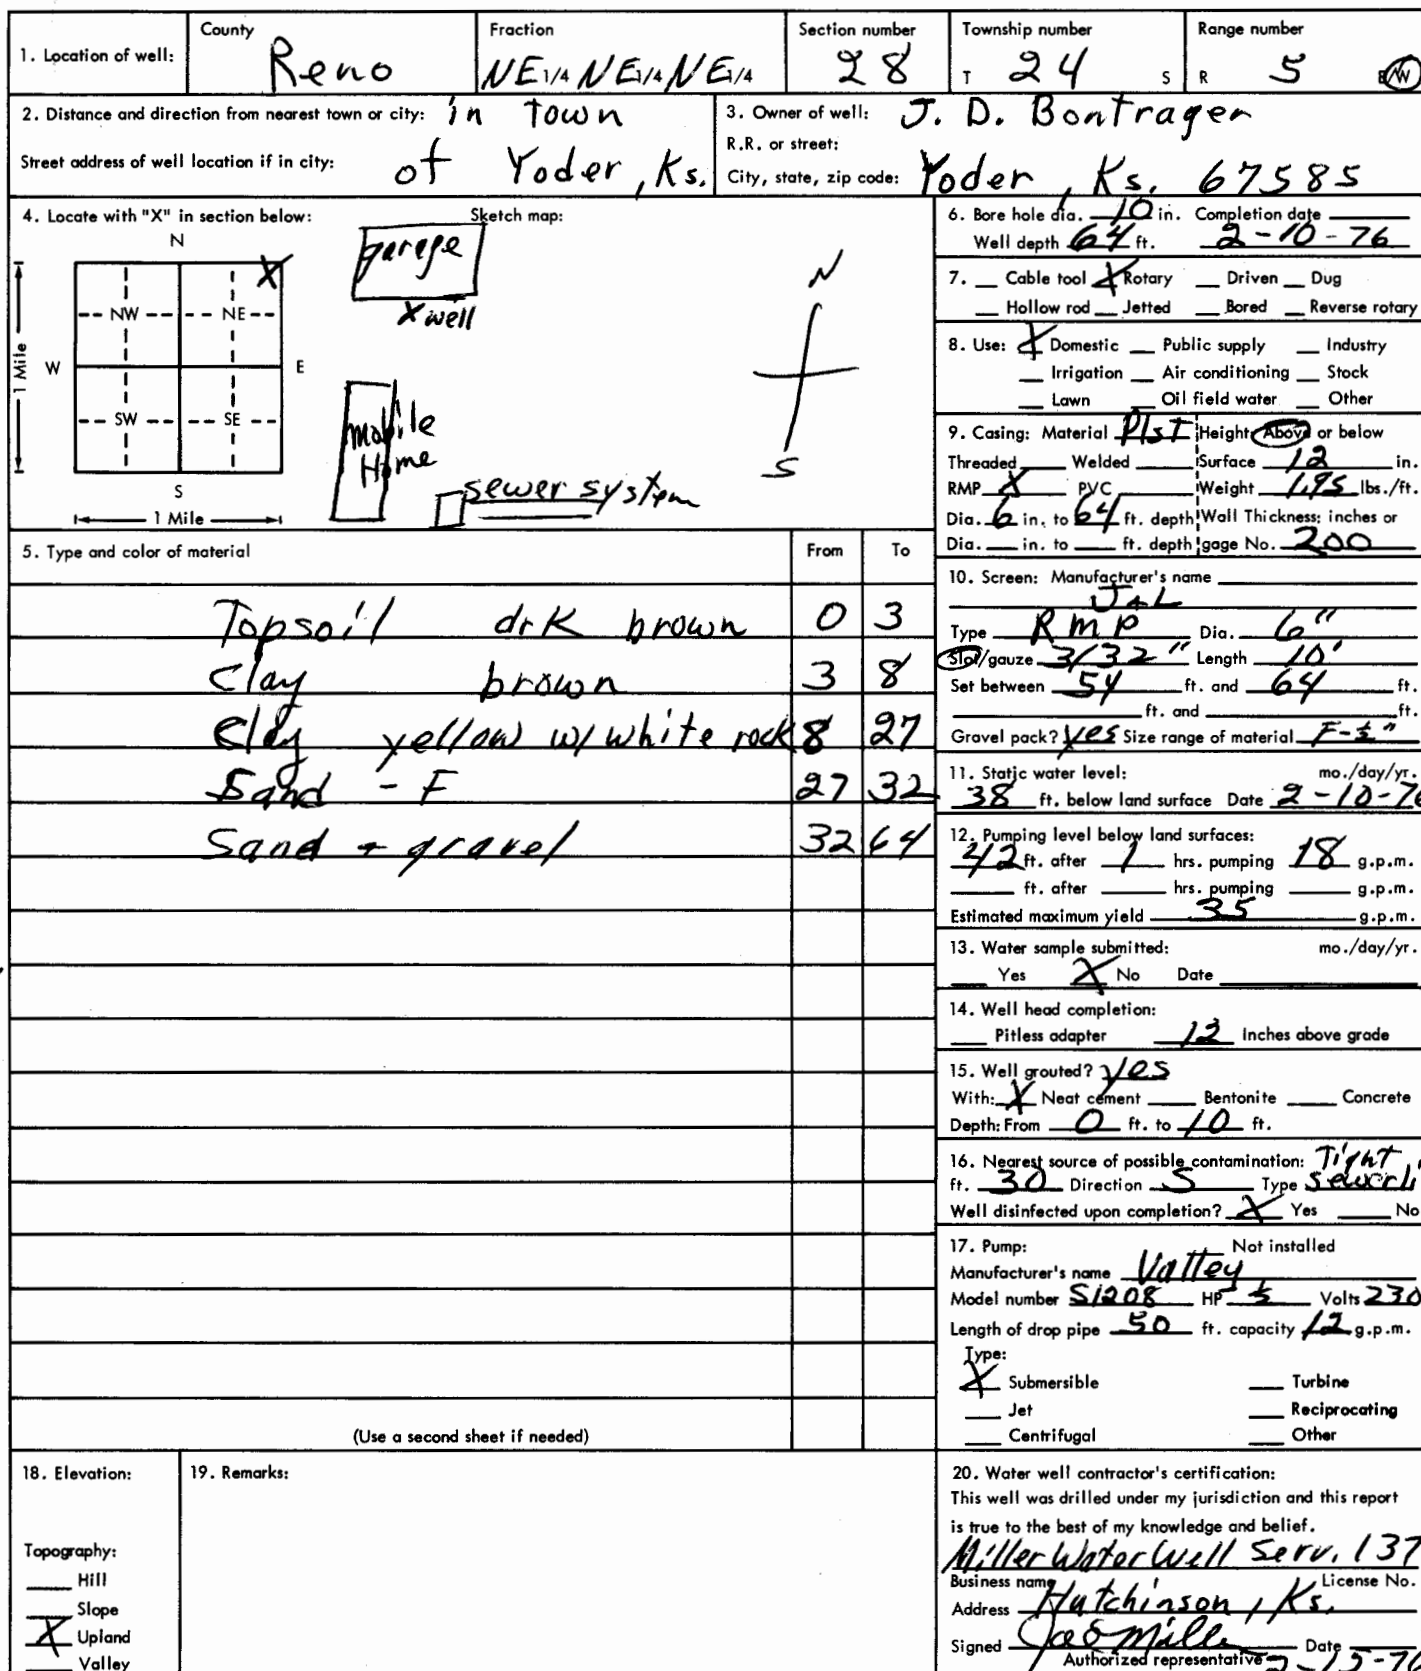 County Fraction Section number Township number Range number
1. Location of well: Reno NE 1/4 NE 1/4 NE 1/4 28 T 24 S R 5 E/W
2. Distance and direction from nearest town or city: in town
Street address of well location if in city: of Yoder, Ks.
3. Owner of well: J. D. Bontrager
R.R. or street:
City, state, zip code: Yoder, Ks. 67585
4. Locate with "X" in section below: Sketch map:
N
NW NE
W E
SW SE
S
1 Mile
1 Mile
X
garage
X well
mobile
Home
sewer system
N
S
6. Bore hole dia. 10 in. Completion date
Well depth 64 ft. 2-10-76
7. Cable tool X Rotary Driven Dug
Hollow rod Jetted Bored Reverse rotary
8. Use: X Domestic Public supply Industry
Irrigation Air conditioning Stock
Lawn Oil field water Other
9. Casing: Material Plst Height: Above or below
Threaded Welded Surface 12 in.
RMP X PVC Weight 1.95 lbs./ft.
Dia. 6 in. to 64 ft. depth Wall Thickness: inches or
Dia. in. to ft. depth gage No. 200
5. Type and color of material From To
Topsoil drk brown 0 3
Clay brown 3 8
Clay yellow w/ white rock 8 27
Sand - F 27 32
Sand + gravel 32 64
(Use a second sheet if needed)
10. Screen: Manufacturer's name
J&L
Type RMP Dia. 6"
Slot/gauze 3/32" Length 10'
Set between 54 ft. and 64 ft.
ft. and ft.
Gravel pack? yes Size range of material F-½"
11. Static water level: mo./day/yr.
38 ft. below land surface Date 2-10-76
12. Pumping level below land surfaces:
42 ft. after 1 hrs. pumping 18 g.p.m.
ft. after hrs. pumping g.p.m.
Estimated maximum yield 35 g.p.m.
13. Water sample submitted: mo./day/yr.
Yes X No Date
14. Well head completion:
Pitless adapter 12 Inches above grade
15. Well grouted? yes
With: X Neat cement Bentonite Concrete
Depth: From 0 ft. to 10 ft.
16. Nearest source of possible contamination: Tight
ft. 30 Direction S Type sewer li
Well disinfected upon completion? X Yes No
17. Pump: Not installed
Manufacturer's name Valley
Model number S1208 HP Volts 230
Length of drop pipe 50 ft. capacity 12 g.p.m.
Type:
X Submersible Turbine
Jet Reciprocating
Centrifugal Other
18. Elevation:
Topography:
Hill
Slope
X Upland
Valley
19. Remarks:
20. Water well contractor's certification:
This well was drilled under my jurisdiction and this report
is true to the best of my knowledge and belief.
Miller Water Well Serv. 137
Business name License No.
Address Hutchinson, Ks.
Signed Date
Authorized representative 2-15-76